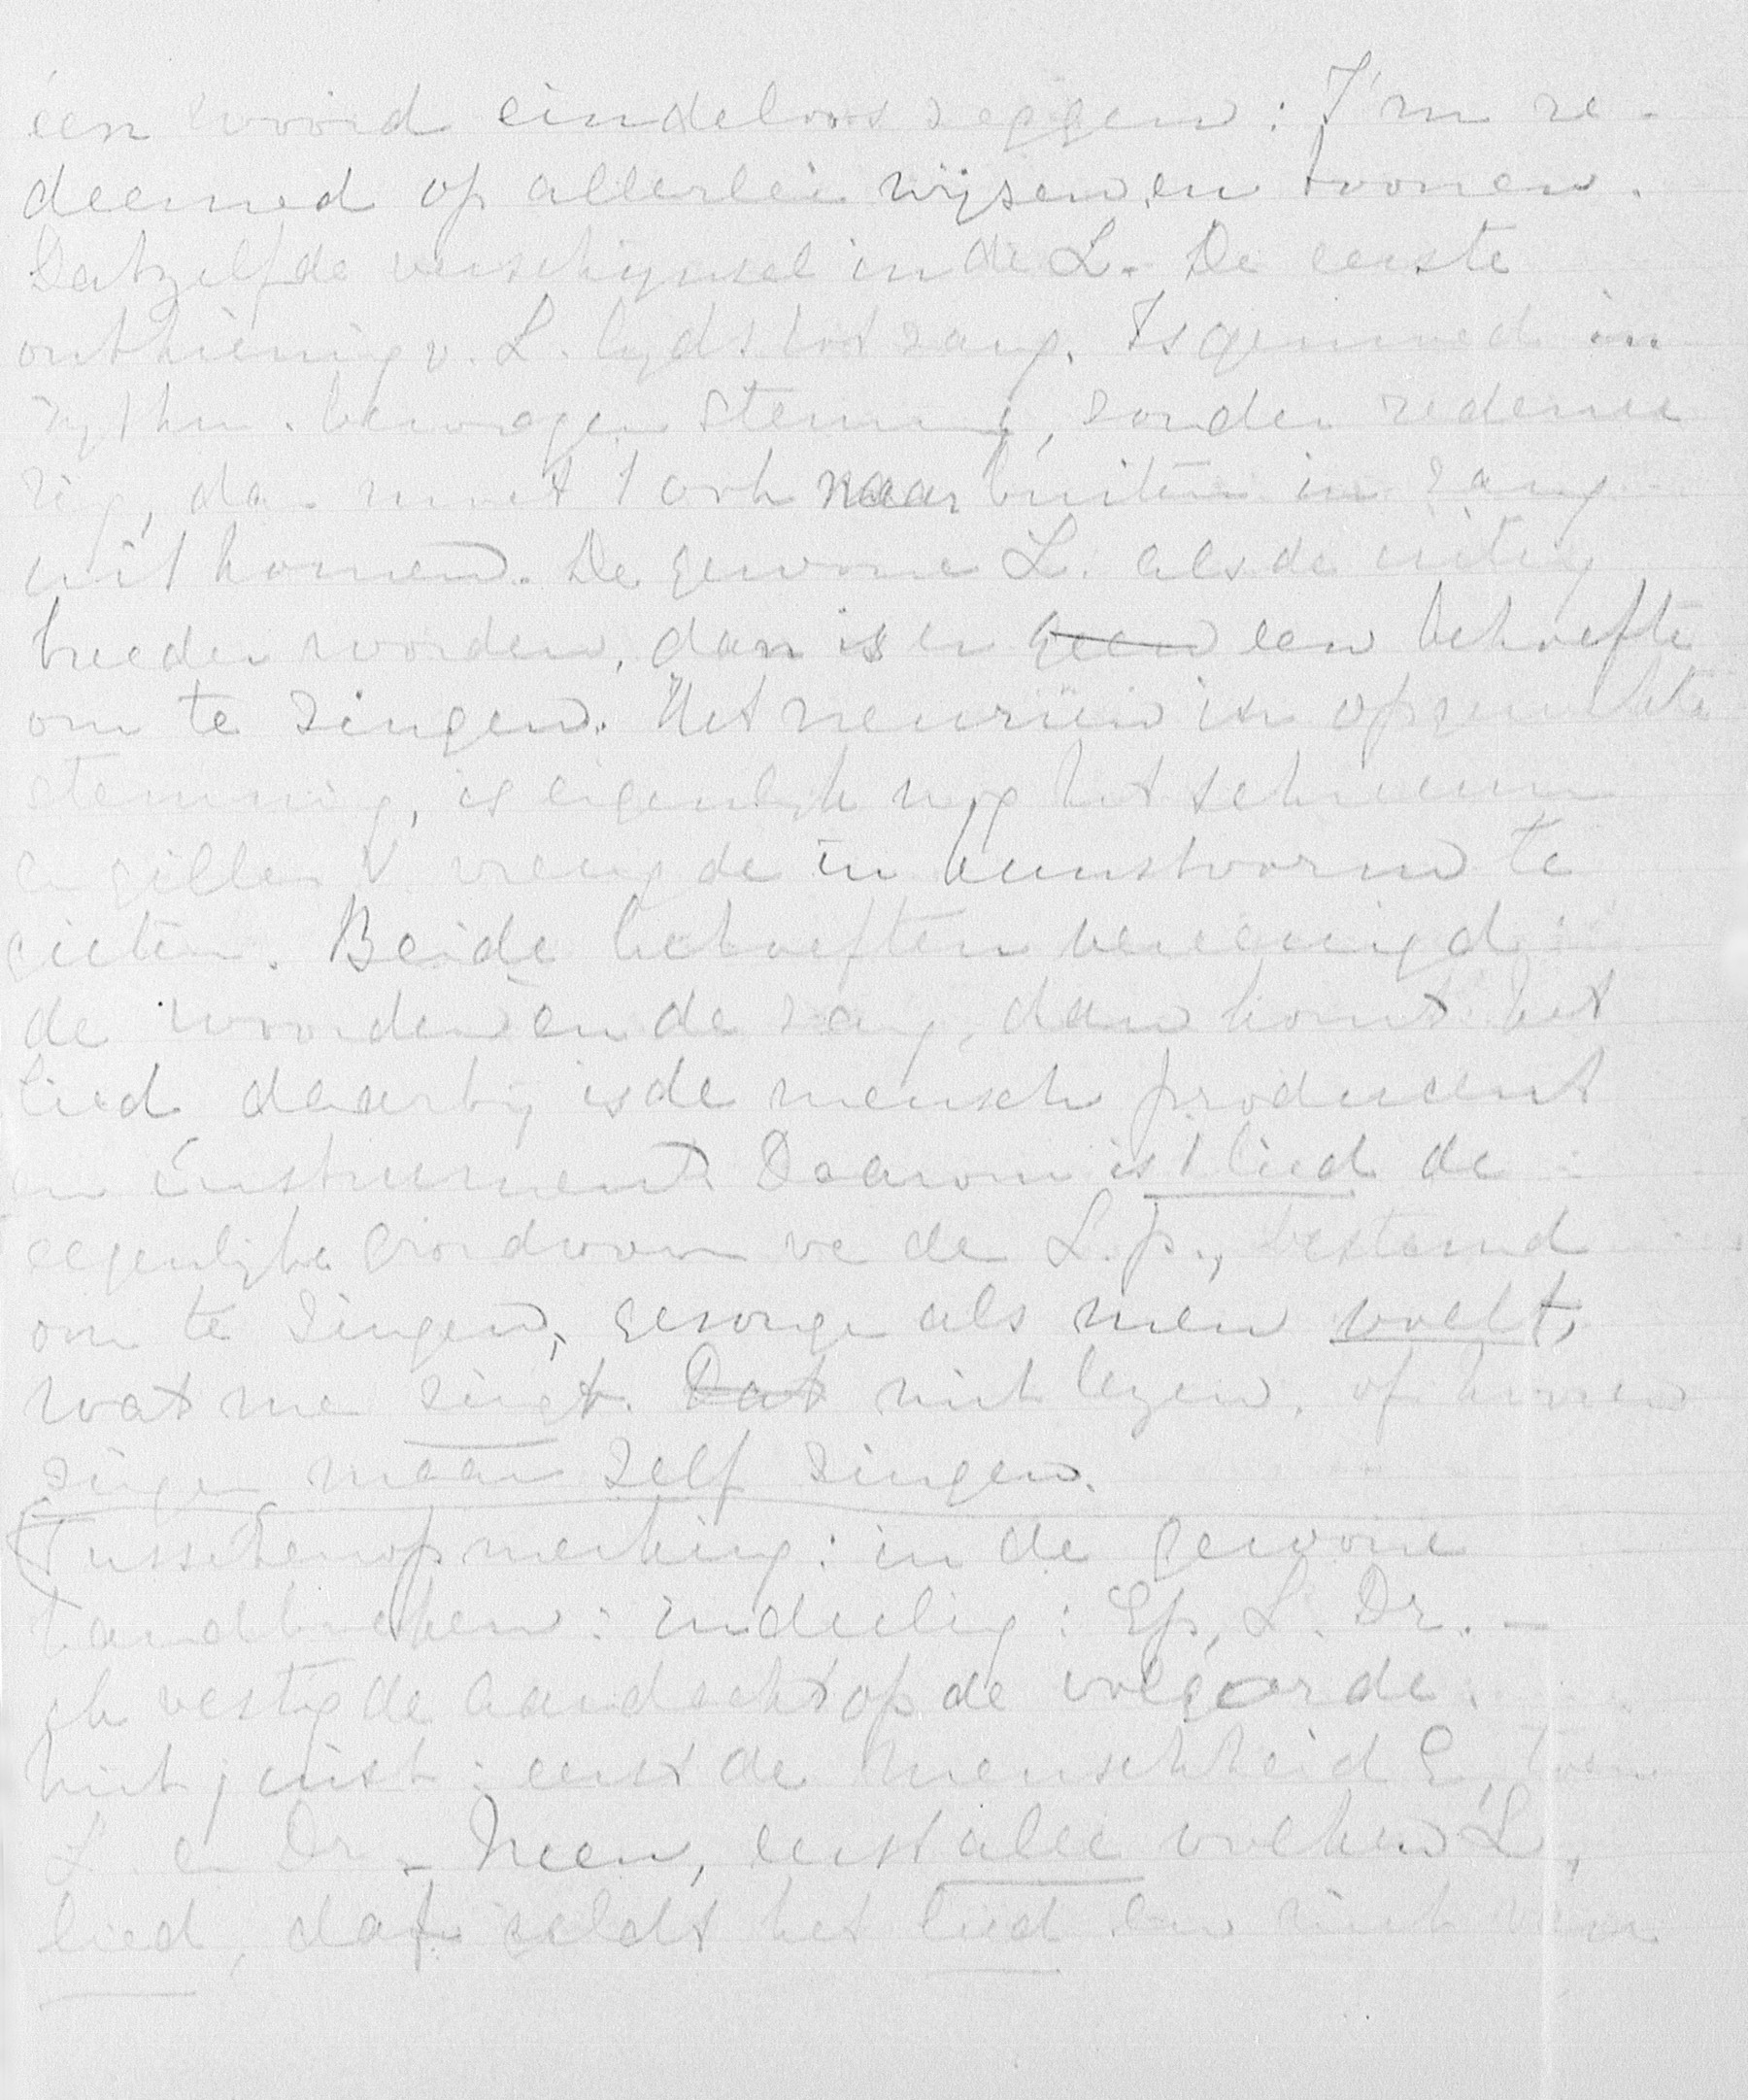 één woord eindeloos zeggen: I'm re-
deemed op allerlei wijsen en toonen.
Datzelfde verschijnsel in de L. De eerste
ontkieming v. L. lijdt tot zang. Is gemoed in
rythm. bewogen stemming, zonder redenee
rig, dan moet 't ook naar buiten in zang
uitkomen. De gewone L. als de uiting
breeder worden, dan is er geen een behoefte
om te zingen. Het neuriën in opgewekte
stemming, is eigenlijk nog het schreeuwen
en gillen v. vreugde in kunstvorm te
gieten. Beide behoeften vereenigd:
de woorden en de zang, dan komt het
lied daarbij is de mensch producent
en instrument. Daarom is 't lied de
eigenlijke grondvorm van de L.p., bestemd
om te zingen, gezongen als men voelt,
wat men zingt. Dat niet lezen, of hooren
zingen maar zelf zingen.
(Tusschenopmerking: in de gewone
handboeken: indeeling: Ep, L. Dr. —
ik vestig de aandacht op de volgorde.
Niet juist: eerst de menschheid E, toen
L. en Dr. – Neen, eerst alle volken L,
lied, dat geldt het lied en niet van